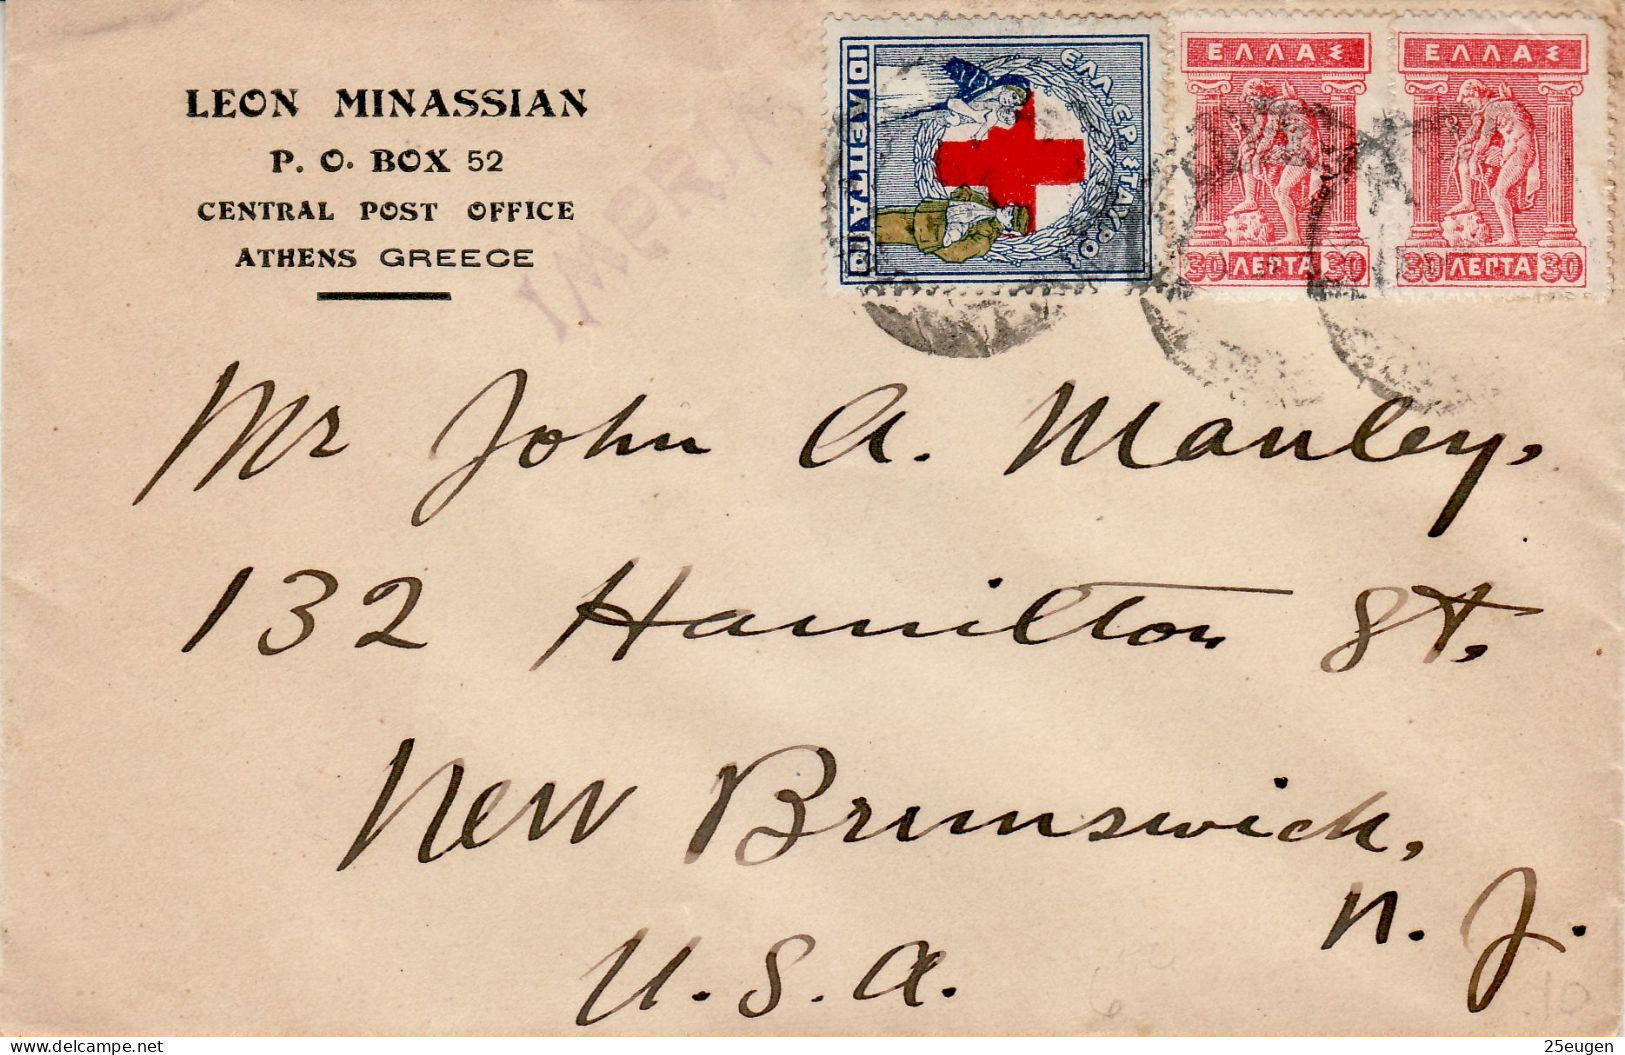 LEON MINASSIAN
P. O. BOX 52
CENTRAL POST OFFICE
ATHENS GREECE
10 ΛΕΠΤΑ 10
ΕΛΛ. ΕΡ. ΣΤΑΥΡΟΣ
ΕΛΛΑΣ
30 ΛΕΠΤΑ 30
ΕΛΛΑΣ
30 ΛΕΠΤΑ 30
Mr John A. Manley,
132 Hamilton St,
New Brunswick,
N. J.
U. S. A.
25eugen